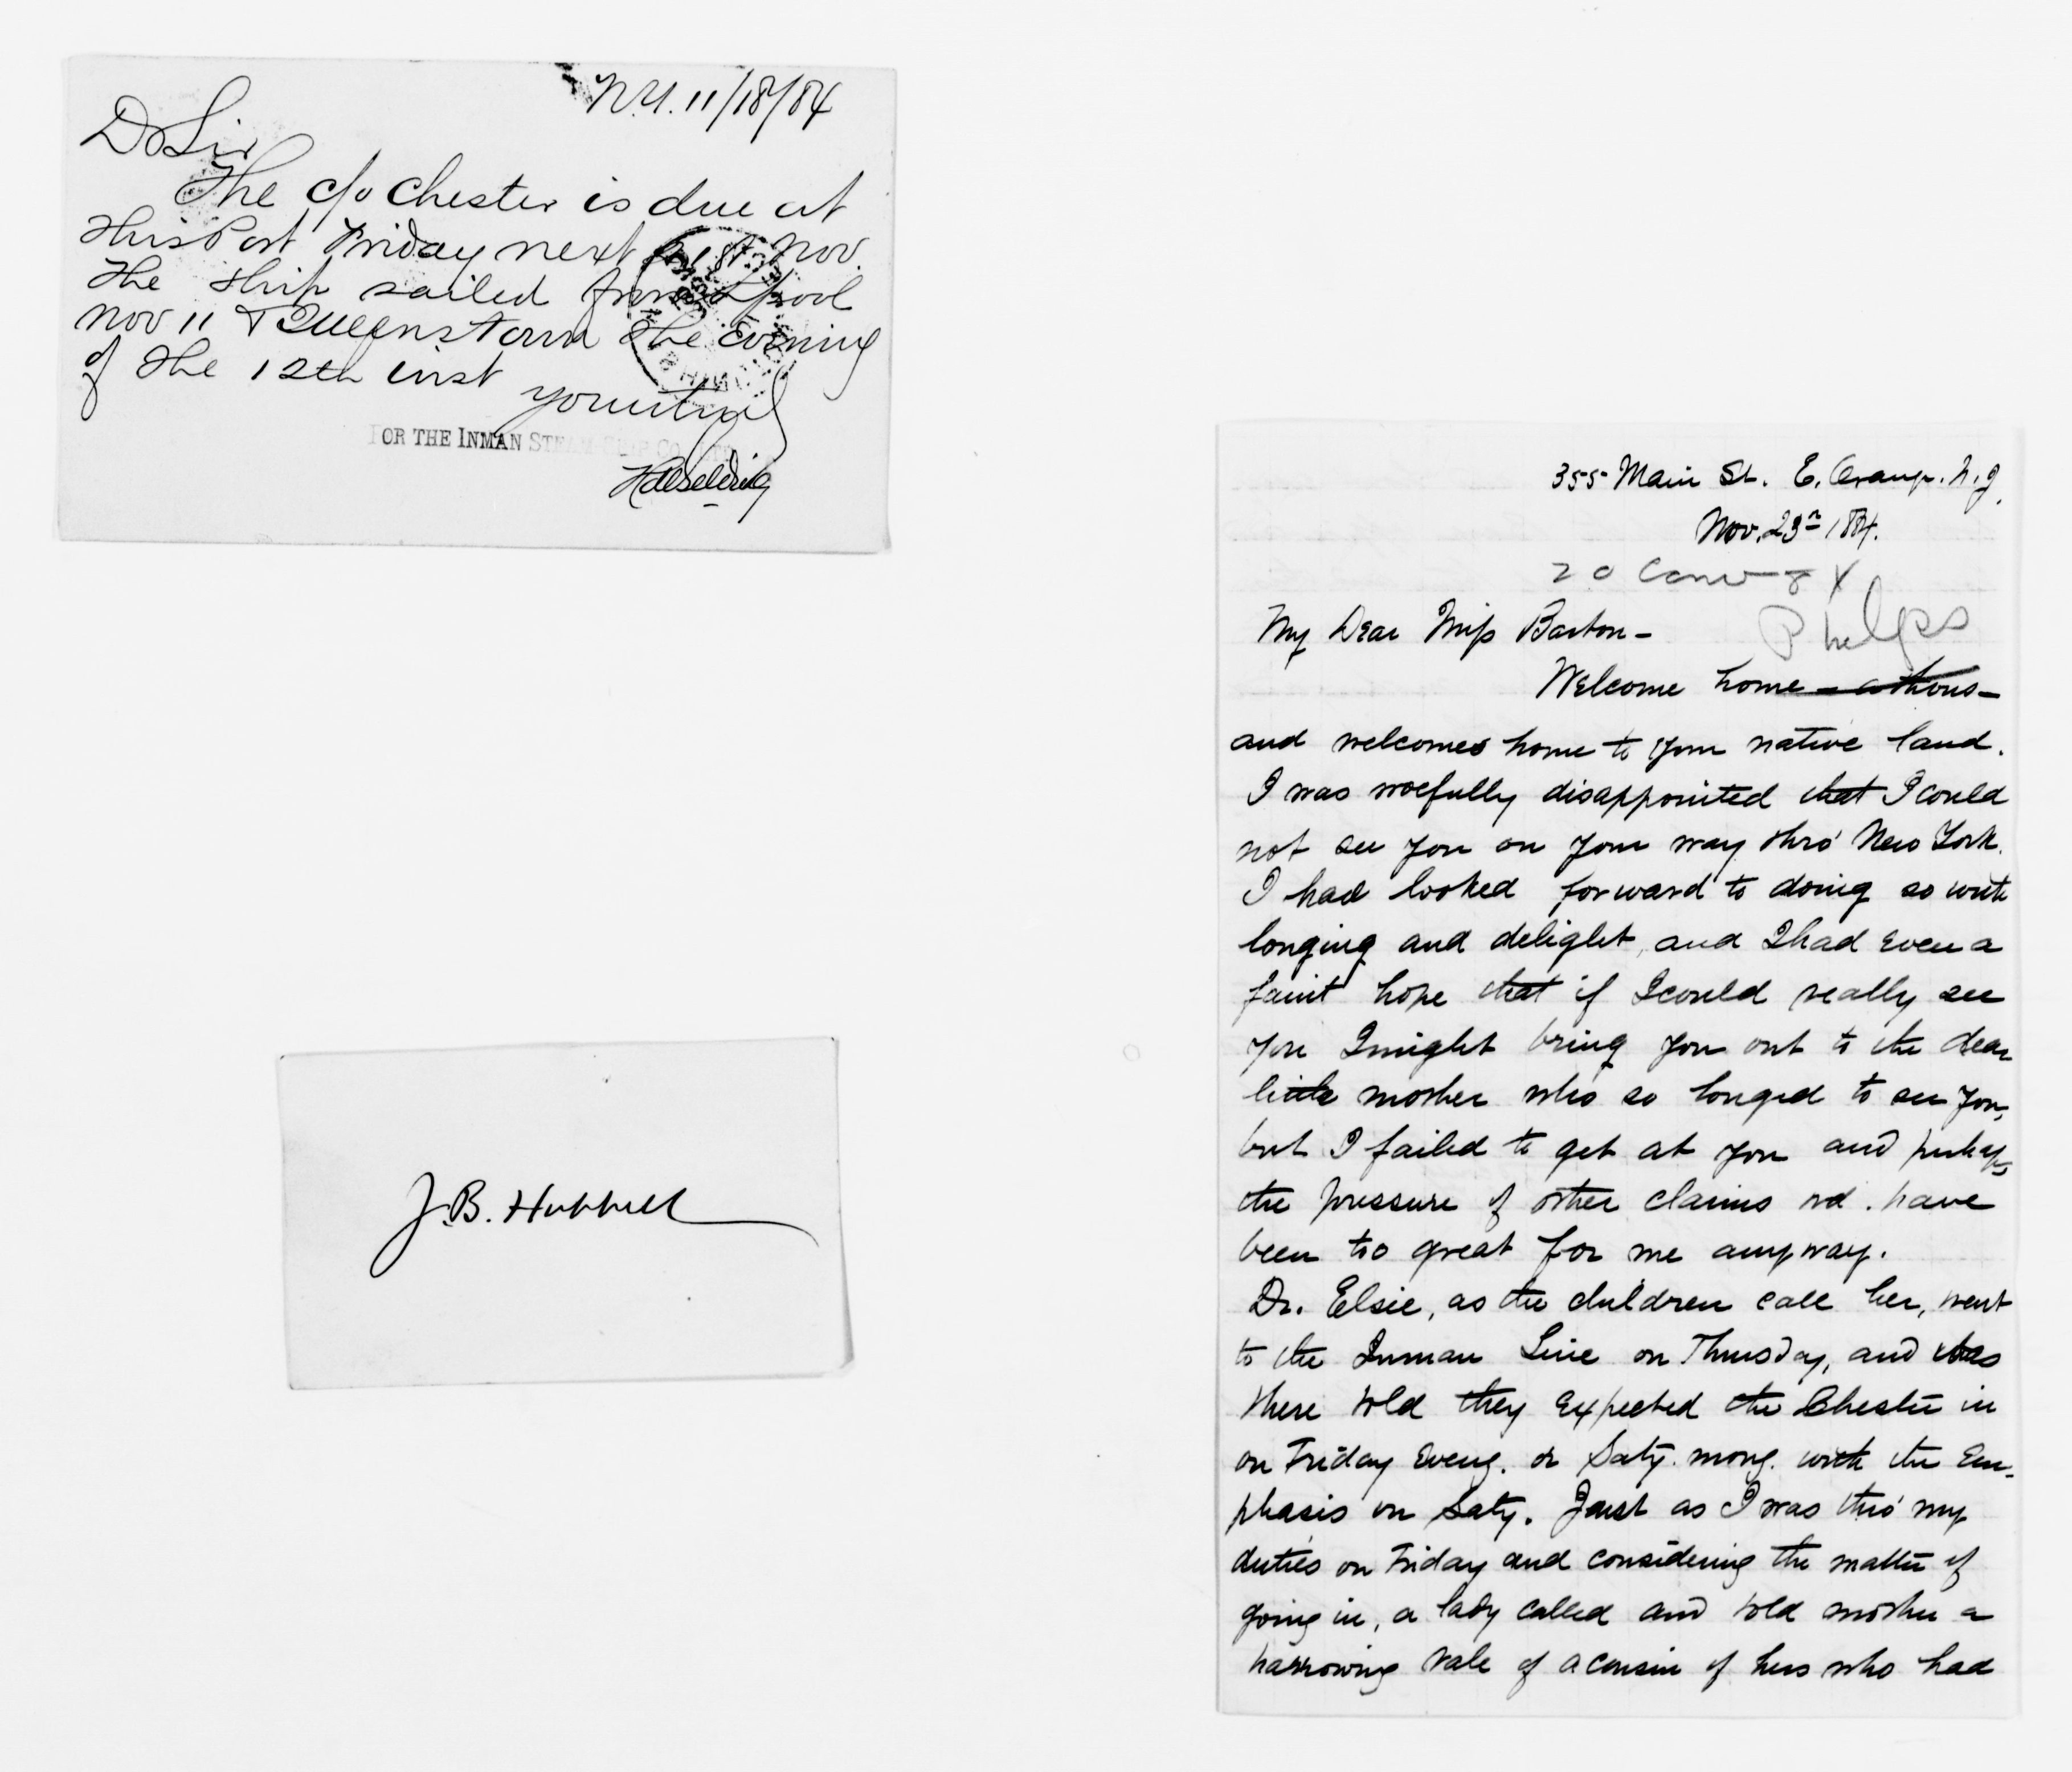 N.Y. 11/18/84
D Sir
The c/o Chester is due at
this Port Friday next 21st Nov.
The ship sailed from Lpool
Nov 11 & Queenstown the Evening
of the 12th inst
yours truly
FOR THE INMAN STEAM SHIP CO.
J.B. Hubbell
355 Main St. E. Orange. N.J.
Nov. 23rd 1884.
Phelps
My Dear Miss Barton—
Welcome home — a thous-
and welcomes home to your native land.
I was woefully disappointed that I could
not see you on your way thro' New York.
I had looked forward to doing so with
longing and delight, and I had even a
faint hope that if I could really see
you I might bring you out to the dear
little mother who so longed to see you,
but I failed to get at you and perhaps
the pressure of other claims wd. have
been too great for me anyway.
Dr. Elsie, as the children call her, went
to the Inman Line on Thursday, and was
there told they expected the Chester in
on Friday eveng. or Saty. mong. with the em-
phasis on Saty. Just as I was thro' my
duties on Friday and considering the matter of
going in, a lady called and told mother a
harrowing tale of a cousin of hers who had